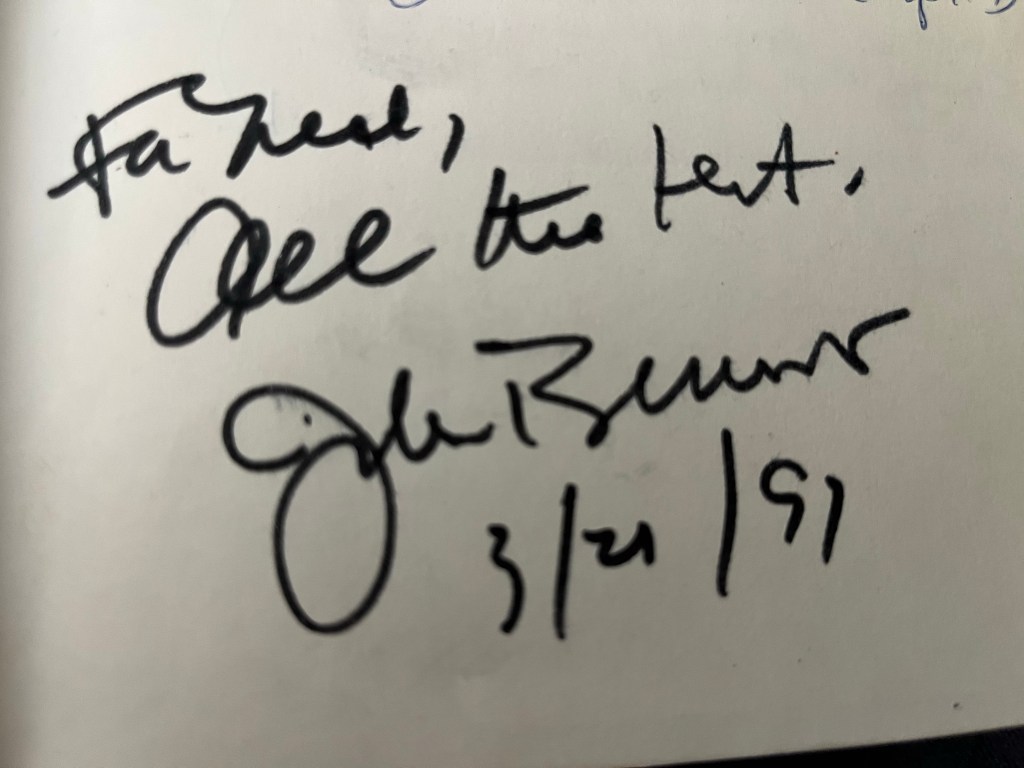 For Neal,
All the best.
John
3/21/91